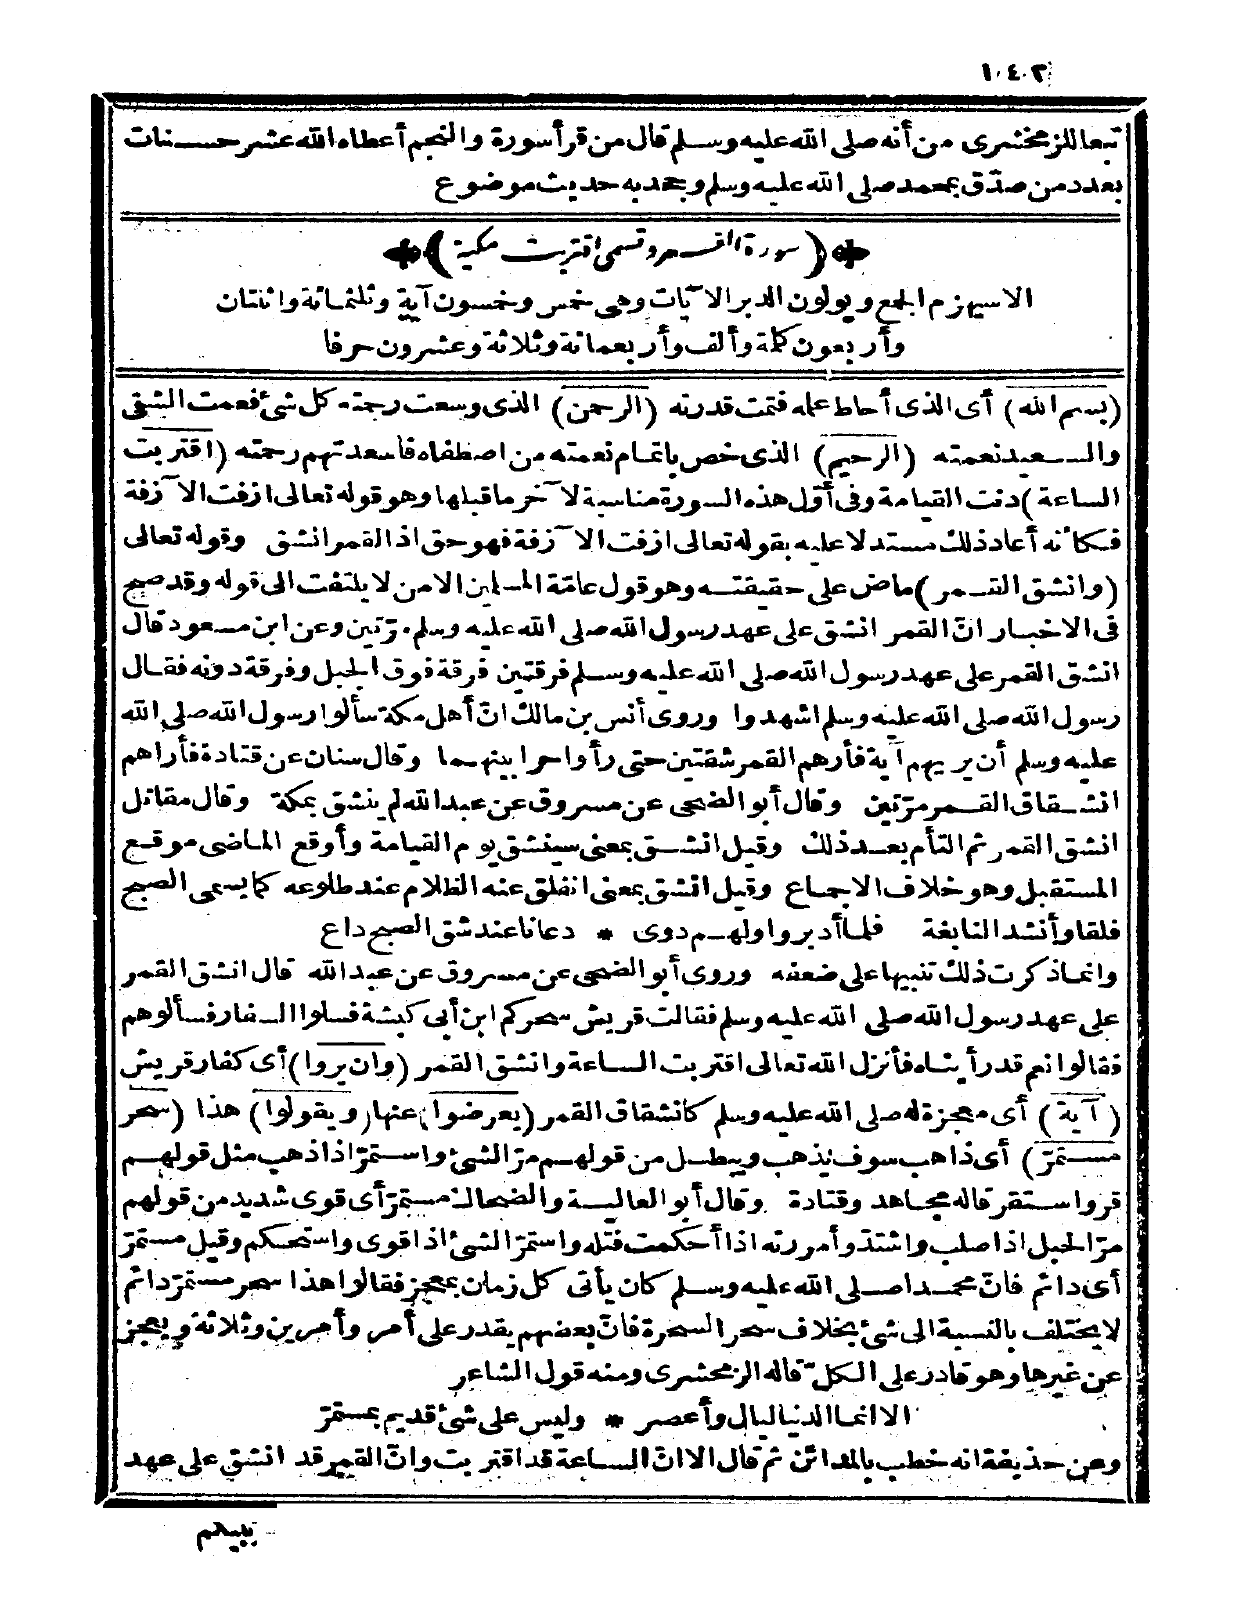 ١٠٤٠٣
تبعا للزمخشرى من أنه صلى الله عليه وسلم قال من قرأ سورة والنجم أعطاه الله عشر حسنات
بعدد من صدّق بمحمد صلى الله عليه وسلم وجحد به حديث موضوع
(سورة القمر وتسمى اقتربت مكية)
الاسيهزم الجمع ويولون الدبر الآيات وهى خمس وخمسون آية وثلثمائة واثنتان
وأربعون كلمة وألف وأربعمائة وثلاثة وعشرون حرفا
(بسم الله) أى الذى أحاط علمه فتمت قدرته (الرحمن) الذى وسعت رحمته كل شئ فعمت الشقى
والسعيد نعمته (الرحيم) الذى خص باتمام نعمته من اصطفاه فأسعدتهم رحمته (اقتربت
الساعة) دنت القيامة وفى أوّل هذه السورة مناسبة لآخر ماقبلها وهو قوله تعالى ازفت الآزفة
فكأنه أعاد ذلك مستدلا عليه بقوله تعالى ازفت الآزفة فهو حق اذ القمر انشق وقوله تعالى
(وانشق القمر) ماض على حقيقته وهو قول عامّة المسلمين الا من لا يلتفت الى قوله وقد صح
فى الاخبار انّ القمر انشق على عهد رسول الله صلى الله عليه وسلم مرّتين وعن ابن مسعود قال
انشق القمر على عهد رسول الله صلى الله عليه وسلم فرقتين فرقة فوق الجبل وفرقة دونه فقال
رسول الله صلى الله عليه وسلم اشهدوا وروى أنس بن مالك انّ أهل مكة سألوا رسول الله صلى الله
عليه وسلم أن يريهم آية فأراهم القمر شقتين حتى رأوا حرا بينهما وقال سنان عن قتادة فأراهم
انشقاق القمر مرّتين وقال أبو الضحى عن مسروق عن عبد الله لم ينشق بمكة وقال مقاتل
انشق القمر ثم التأم بعد ذلك وقيل انشق بمعنى سينشق يوم القيامة وأوقع الماضى موقع
المستقبل وهو خلاف الاجماع وقيل انشق بمعنى انفلق عنه الظلام عند طلوعه كما يسمى الصبح
فلقا وأنشد النابغة فلما أدبروا ولهم دوى * دعانا عند شق الصبح داع
وانما ذكرت ذلك تنبيها على ضعفه وروى أبو الضحى عن مسروق عن عبد الله قال انشق القمر
على عهد رسول الله صلى الله عليه وسلم فقالت قريش سحركم ابن أبى كبشة فسلوا السفار فسألوهم
فقالوا نعم قد رأيناه فأنزل الله تعالى اقتربت الساعة وانشق القمر (وان يروا) أى كفار قريش
(آية) أى معجزة له صلى الله عليه وسلم كانشقاق القمر (يعرضوا) عنها (ويقولوا) هذا (سحر
مستمرّ) أى ذاهب سوف يذهب ويبطل من قولهم مرّ الشئ واستمرّ اذا ذهب مثل قولهم
قر واستقر قاله مجاهد وقتادة وقال أبو العالية والضحاك مستمرّ أى قوى شديد من قولهم
مرّ الحبل اذا صلب واشتدّ وأمررته اذا أحكمت فتله واستمرّ الشئ اذا قوى واستحكم وقيل مستمرّ
أى دائم فانّ محمدا صلى الله عليه وسلم كان يأتى كل زمان بمعجز فقالوا هذا سحر مستمرّ دائم
لا يختلف بالنسبة الى شئ بخلاف سحر السحرة فانّ بعضهم يقدر على أمر وأمرين وثلاثة ويعجز
عن غيرها وهو قادر على الكل قاله الزمخشرى ومنه قول الشاعر
الا انما الدنيا ليال وأعصر * وليس على شئ قديم بمستمرّ
وعن حذيفة انه خطب بالمدائن ثم قال الا انّ الساعة قد اقتربت وانّ القمر قد انشق على عهد
نبيكم